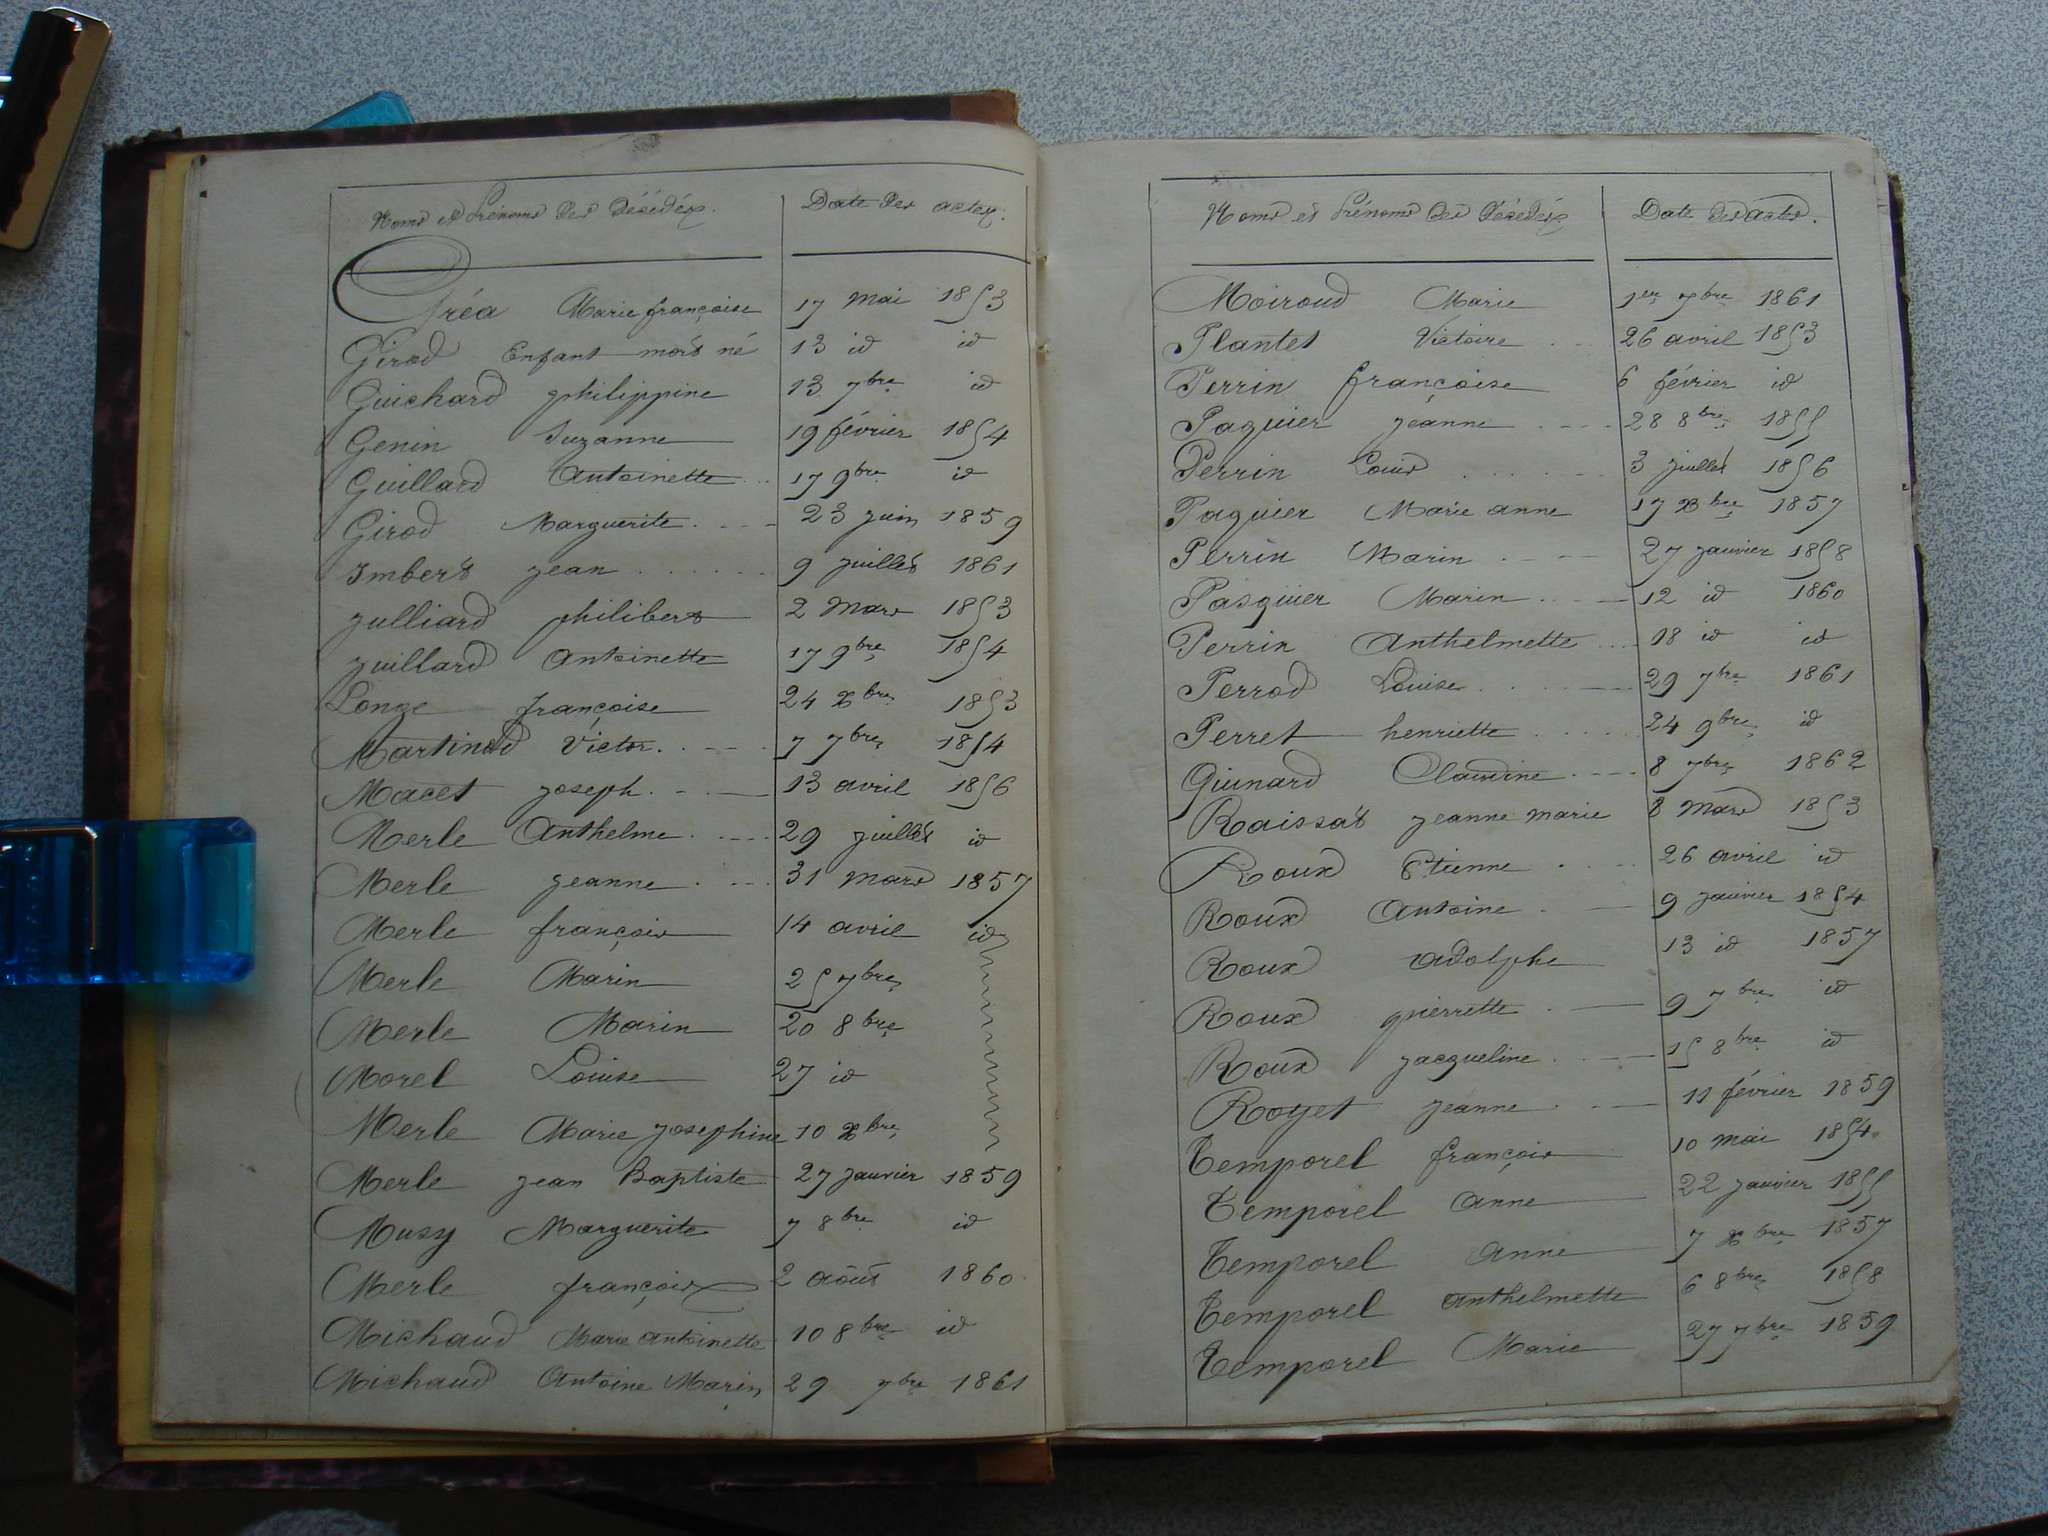 Noms et Prénoms des Décédés. Date des actes.
Gréa Marie françoise 17 mai 1853
Girod Enfant mort né 13 id id
Guichard philippine 13 7bre id
Genin Suzanne 19 février 1854
Guillard Antoinette 17 9bre id
Girod Marguerite 23 juin 1859
Imbert jean 9 juillet 1861
Julliard philibert 2 Mars 1853
Juillard Antoinette 17 9bre 1854
Longe françoise 24 Xbre 1853
Martinod Victor 7 7bre 1854
Macet joseph 13 avril 1856
Merle Anthelme 29 juillet id
Merle jeanne 31 mars 1857
Merle françois 14 avril id
Merle Marin 25 7bre
Merle Marin 20 8bre
Morel Louise 27 id
Merle Marie josephine 10 Xbre
Merle jean Baptiste 27 janvier 1859
Musy Marguerite 7 8bre id
Merle françois 2 août 1860
Michaud Marie antoinette 10 8bre id
Michaud Antoine Marin 29 7bre 1861
Noms et Prénoms des Décédés Date des actes.
Moiroud Marie 1er 7bre 1861
Plantet Victoire 26 avril 1853
Perrin françoise 6 février id
Paquier jeanne 28 8bre 1855
Perrin Louis 3 juillet 1856
Paquier Marie anne 17 Xbre 1857
Perrin Marin 27 janvier 1858
Pasquier Marin 12 id 1860
Perrin Anthelmette 18 id id
Perrod Louise 29 7bre 1861
Perret henriette 24 9bre id
Quinard Claudine 8 7bre 1862
Raissat jeanne marie 8 mars 1853
Roux Etienne 26 avril id
Roux Antoine 9 janvier 1854
Roux adolphe 13 id 1857
Roux pierrette 9 7bre id
Roux jacqueline 15 8bre id
Royet jeanne 11 février 1859
Temporel françois 10 mai 1854
Temporel anne 22 janvier 1855
Temporel anne 7 Xbre 1857
Temporel anthelmette 6 8bre 1858
Temporel Marie 27 7bre 1859